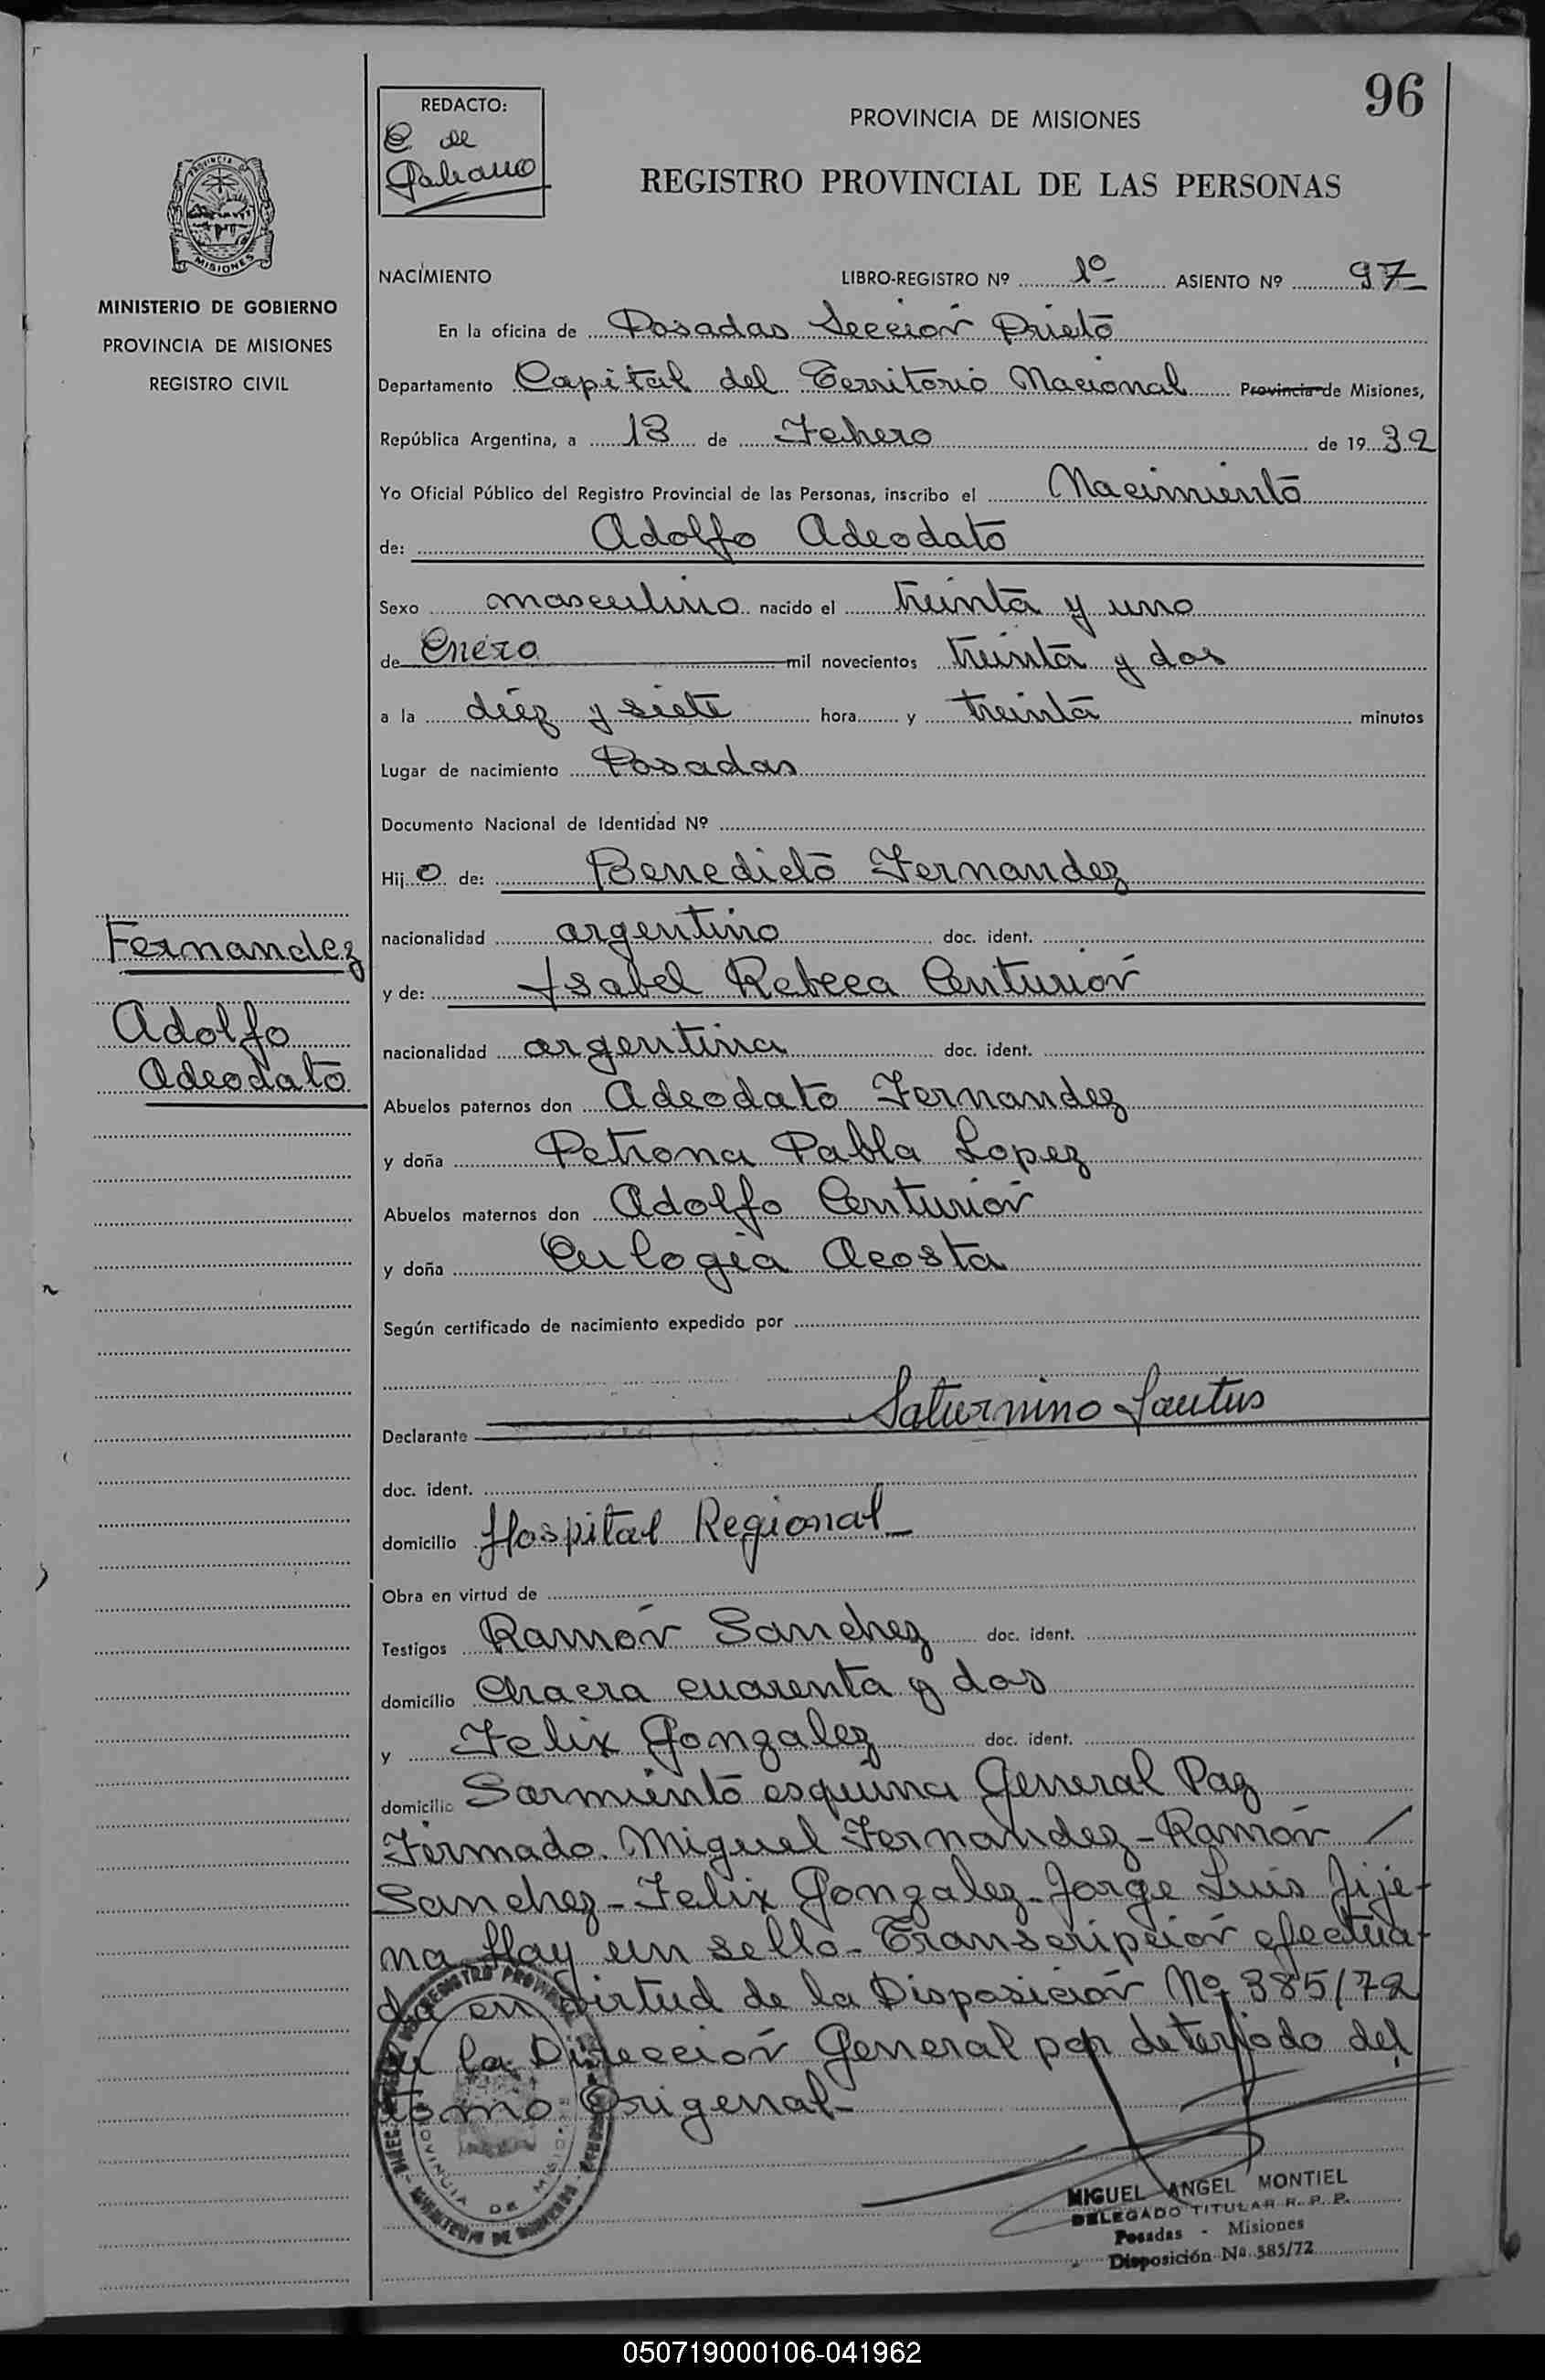 96
REDACTO:
C de
Galeano
PROVINCIA DE MISIONES
REGISTRO PROVINCIAL DE LAS PERSONAS
MISIONES
MINISTERIO DE GOBIERNO
PROVINCIA DE MISIONES
REGISTRO CIVIL
NACIMIENTO LIBRO-REGISTRO Nº 1º ASIENTO Nº 97
En la oficina de Posadas Sección Prieto
Departamento Capital del Territorio Nacional Provincia de Misiones,
República Argentina, a 13 de Febrero de 1932
Yo Oficial Público del Registro Provincial de las Personas, inscribo el Nacimiento
de: Adolfo Adeodato
Sexo masculino nacido el treinta y uno
de Enero mil novecientos treinta y dos
a la diez y siete hora y treinta minutos
Lugar de nacimiento Posadas
Documento Nacional de Identidad Nº
Hijo de: Benedicto Fernandez
nacionalidad argentino doc. ident.
y de: Ysabel Rebeca Centurión
nacionalidad argentina doc. ident.
Fernandez
Adolfo
Adeodato
Abuelos paternos don Adeodato Fernandez
y doña Petrona Pabla Lopez
Abuelos maternos don Adolfo Centurión
y doña Eulogia Acosta
Según certificado de nacimiento expedido por
Declarante Saturnino
doc. ident.
domicilio Hospital Regional
Obra en virtud de
Testigos Ramón Sanchez doc. ident.
domicilio Chacra cuarenta y dos
y Felix Gonzalez doc. ident.
domicilio Sarmiento esquina General Paz
Firmado. Miguel Fernandez - Ramón /
Sanchez - Felix Gonzalez - Jorge Luis Jije-
na Hay un sello - Transcripción efectua-
da en virtud de la Disposición Nº 385/72
de la Dirección General por deteriodo del
tomo Origenal -
MIGUEL ANGEL MONTIEL
DELEGADO TITULAR R. P. P.
Posadas - Misiones
Disposición Nº 385/72
PROVINCIA DE MISIONES
050719000106-041962